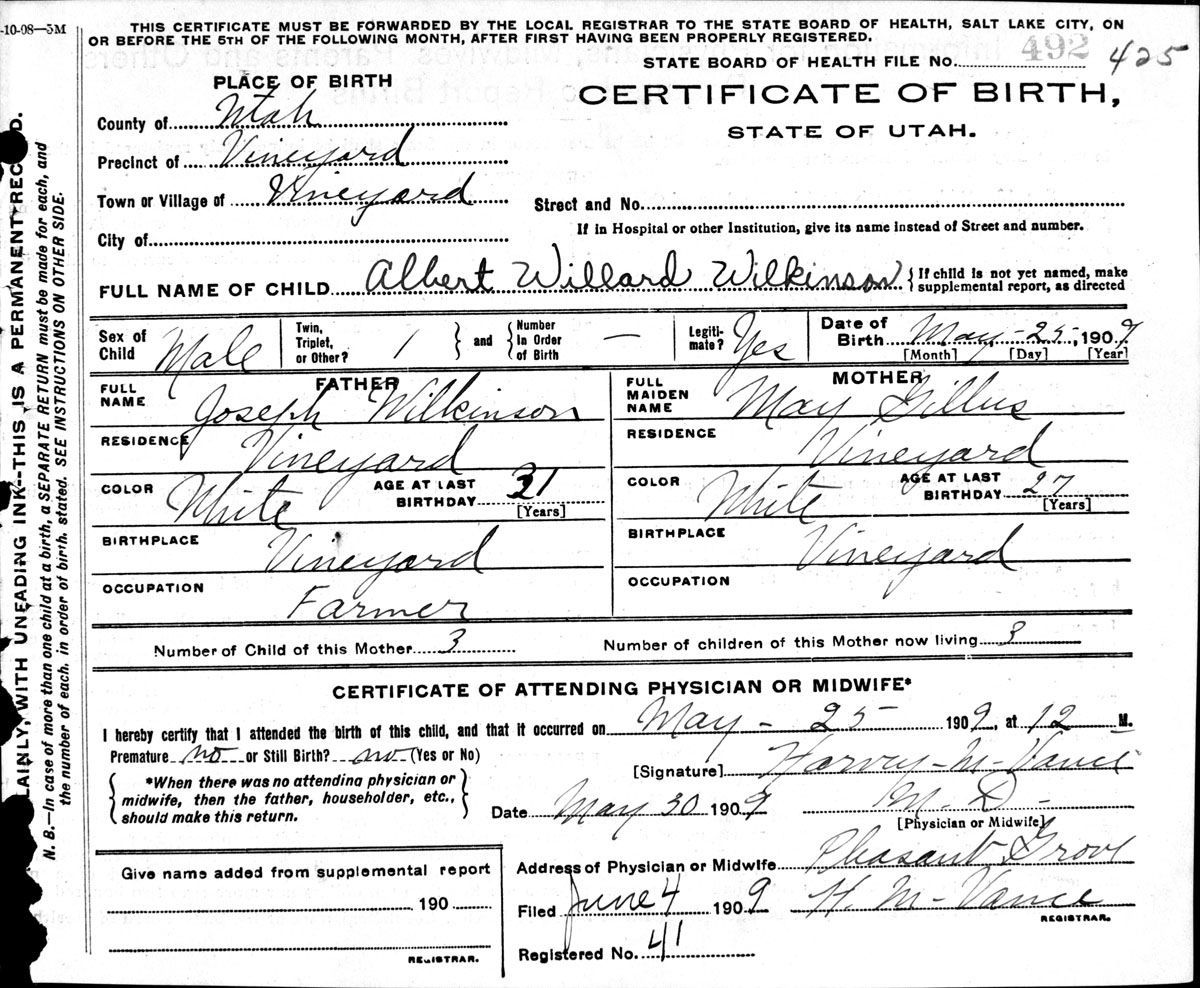 -10-08—5M
THIS CERTIFICATE MUST BE FORWARDED BY THE LOCAL REGISTRAR TO THE STATE BOARD OF HEALTH, SALT LAKE CITY, ON
OR BEFORE THE 5TH OF THE FOLLOWING MONTH, AFTER FIRST HAVING BEEN PROPERLY REGISTERED.
STATE BOARD OF HEALTH FILE No. 492 425
PLACE OF BIRTH
CERTIFICATE OF BIRTH,
STATE OF UTAH.
County of Utah
Precinct of Vineyard
Town or Village of Vineyard
Street and No.
If in Hospital or other Institution, give its name instead of Street and number.
City of
FULL NAME OF CHILD Albert Willard Wilkinson { If child is not yet named, make
supplemental report, as directed
Sex of Child Male
Twin, Triplet, or Other? 1 } and { Number In Order of Birth —
Legiti-mate? Yes
Date of Birth May - 25, 1909
[Month] [Day] [Year]
FATHER
FULL NAME Joseph Wilkinson
RESIDENCE Vineyard
COLOR White AGE AT LAST BIRTHDAY 31
[Years]
BIRTHPLACE Vineyard
OCCUPATION Farmer
MOTHER
FULL MAIDEN NAME May Gillus
RESIDENCE Vineyard
COLOR White AGE AT LAST BIRTHDAY 27
[Years]
BIRTHPLACE Vineyard
OCCUPATION
Number of Child of this Mother 3 Number of children of this Mother now living 3
CERTIFICATE OF ATTENDING PHYSICIAN OR MIDWIFE*
I hereby certify that I attended the birth of this child, and that it occurred on May - 25 1909, at 12 M.
Premature no or Still Birth? no (Yes or No)
[Signature] Harvey - M - Vance
{ *When there was no attending physician or
midwife, then the father, householder, etc.,
should make this return. }
Date May 30 1909 M. D -
[Physician or Midwife]
Address of Physician or Midwife Pleasant Grove
Filed June 4 1909 H. M - Vance
REGISTRAR.
Registered No. 41
Give name added from supplemental report
190
REGISTRAR.
LAINLY, WITH UNFADING INK—THIS IS A PERMANENT RECORD.
N. B.—In case of more than one child at a birth, a SEPARATE RETURN must be made for each, and
the number of each, in order of birth, stated. SEE INSTRUCTIONS ON OTHER SIDE.